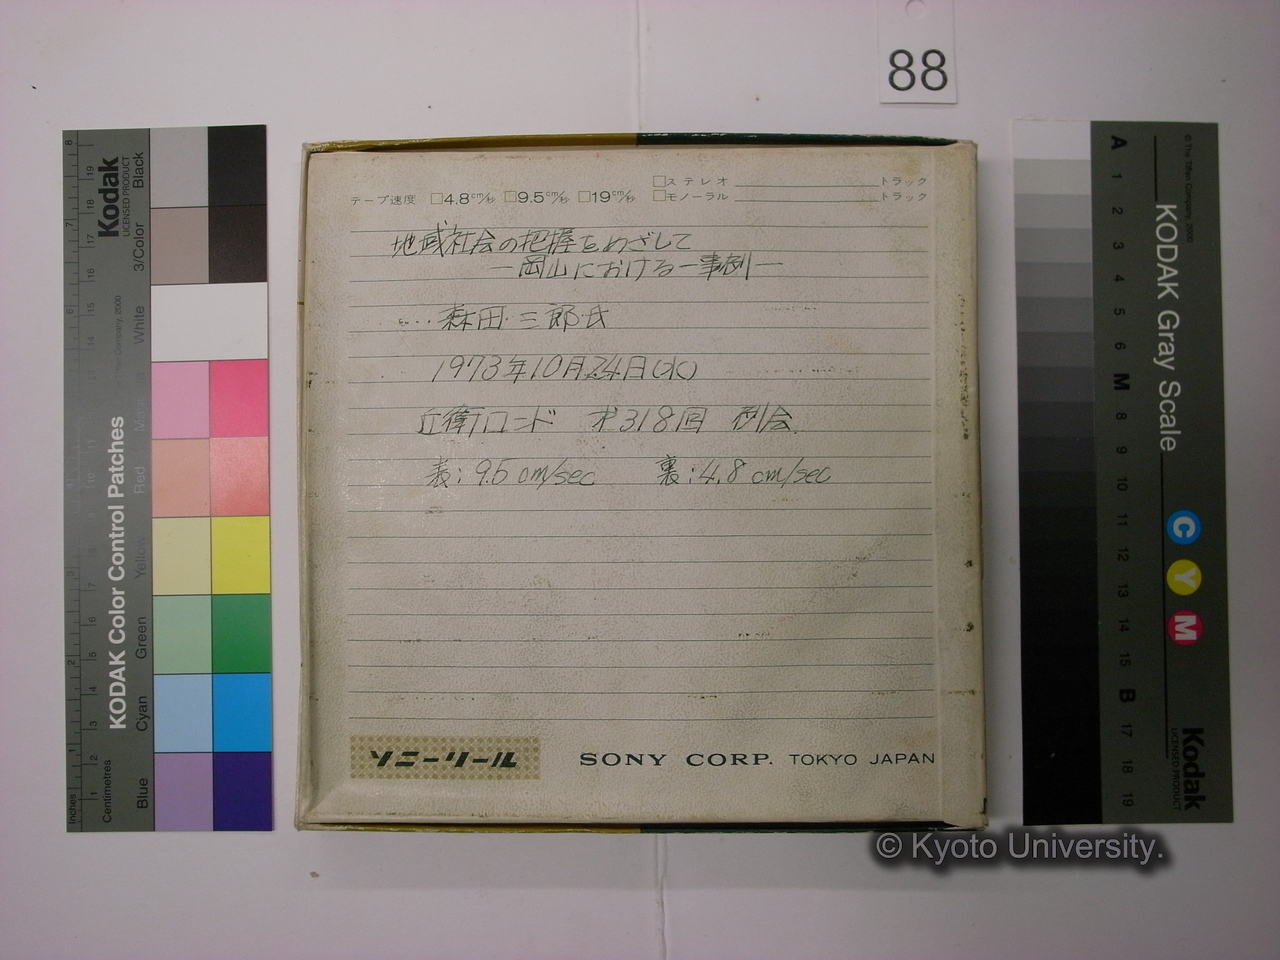 88
テープ速度 □4.8cm/秒 □9.5cm/秒 □19cm/秒
□ステレオ トラック
□モノーラル トラック
地域社会の把握をめざして
―岡山における一事例―
森田三郎氏
1973年10月24日(水)
近衛ロンド 才318回 例会
表:9.5cm/sec 裏:4.8cm/sec
ソニーリール SONY CORP. TOKYO JAPAN
Kodak
LICENSED PRODUCT
KODAK Color Control Patches
Black
3/Color
White
Red
Yellow
Green
Cyan
Blue
Inches
Centimetres
© The Tiffen Company, 2000
KODAK Gray Scale
C
Y
M
Kodak
LICENSED PRODUCT
A 1 2 3 4 5 6 M 8 9 10 11 12 13 14 15 B 17 18 19
© Kyoto University.